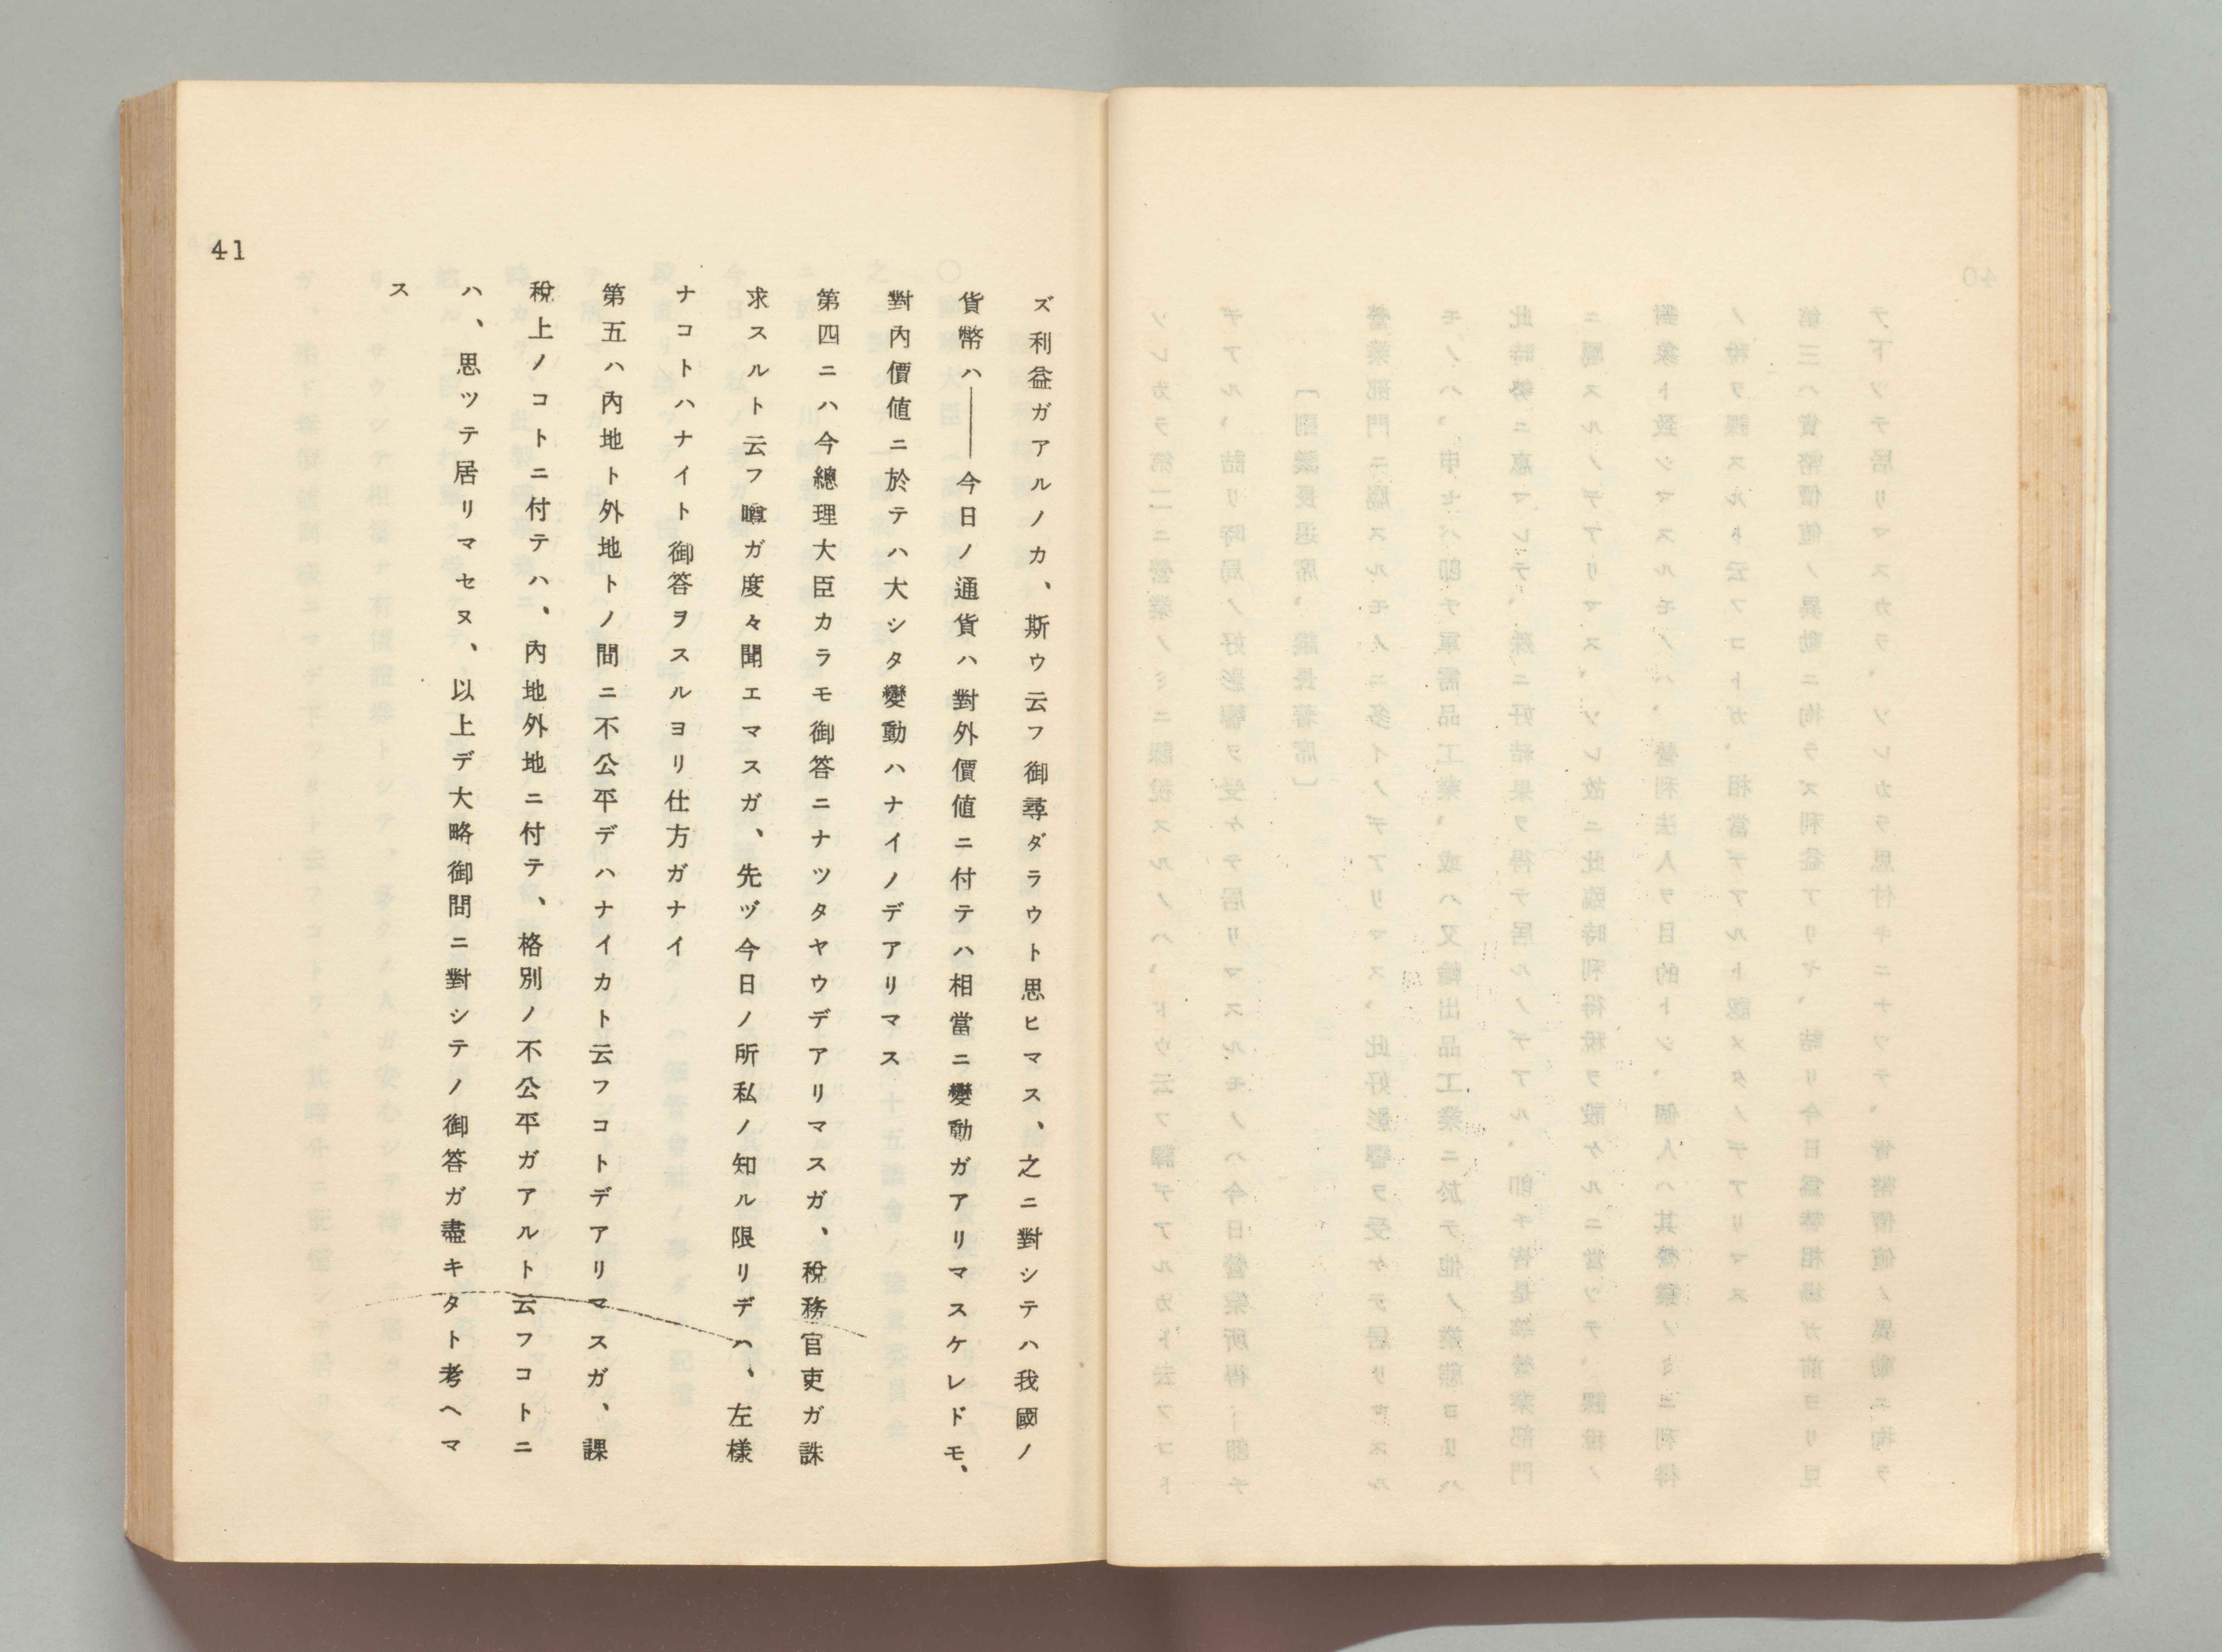 ズ利益ガアルノカ、斯ウ云フ御尋ダラウト思ヒマス、之ニ對シテハ我國ノ
貨幣ハ――今日ノ通貨ハ對外價値ニ付テハ相當ニ變動ガアリマスケレドモ、
對內價値ニ於テハ大シタ變動ハナイノデアリマス
第四ニハ今總理大臣カラモ御答ニナツタヤウデアリマスガ、稅務官吏ガ誅
求スルト云フ噂ガ度々聞エマスガ、先ヅ今日ノ所私ノ知ル限リデハ、左樣
ナコトハナイト御答ヲスルヨリ仕方ガナイ
第五ハ內地ト外地トノ間ニ不公平デハナイカト云フコトデアリマスガ、課
稅上ノコトニ付テハ、內地外地ニ付テ、格別ノ不公平ガアルト云フコトニ
ハ、思ツテ居リマセヌ、以上デ大略御問ニ對シテノ御答ガ盡キタト考ヘマ
ス
41